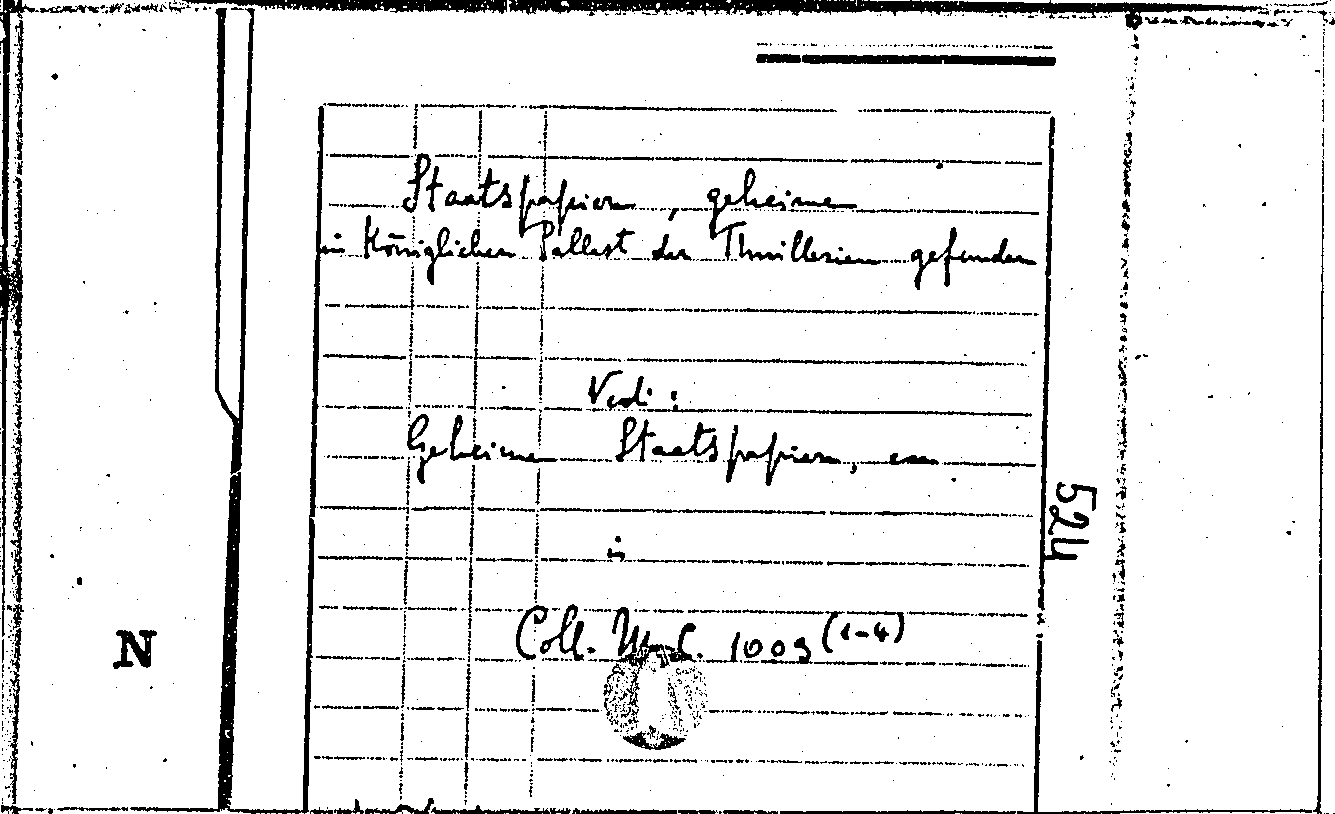 Staatspapiere, geheime
im Königlichen Pallast der Thuillerien gefunden
Vedi:
Geheime Staatspapiere, ecc
in
Coll. M.C. 1009 (1-4)
524
N